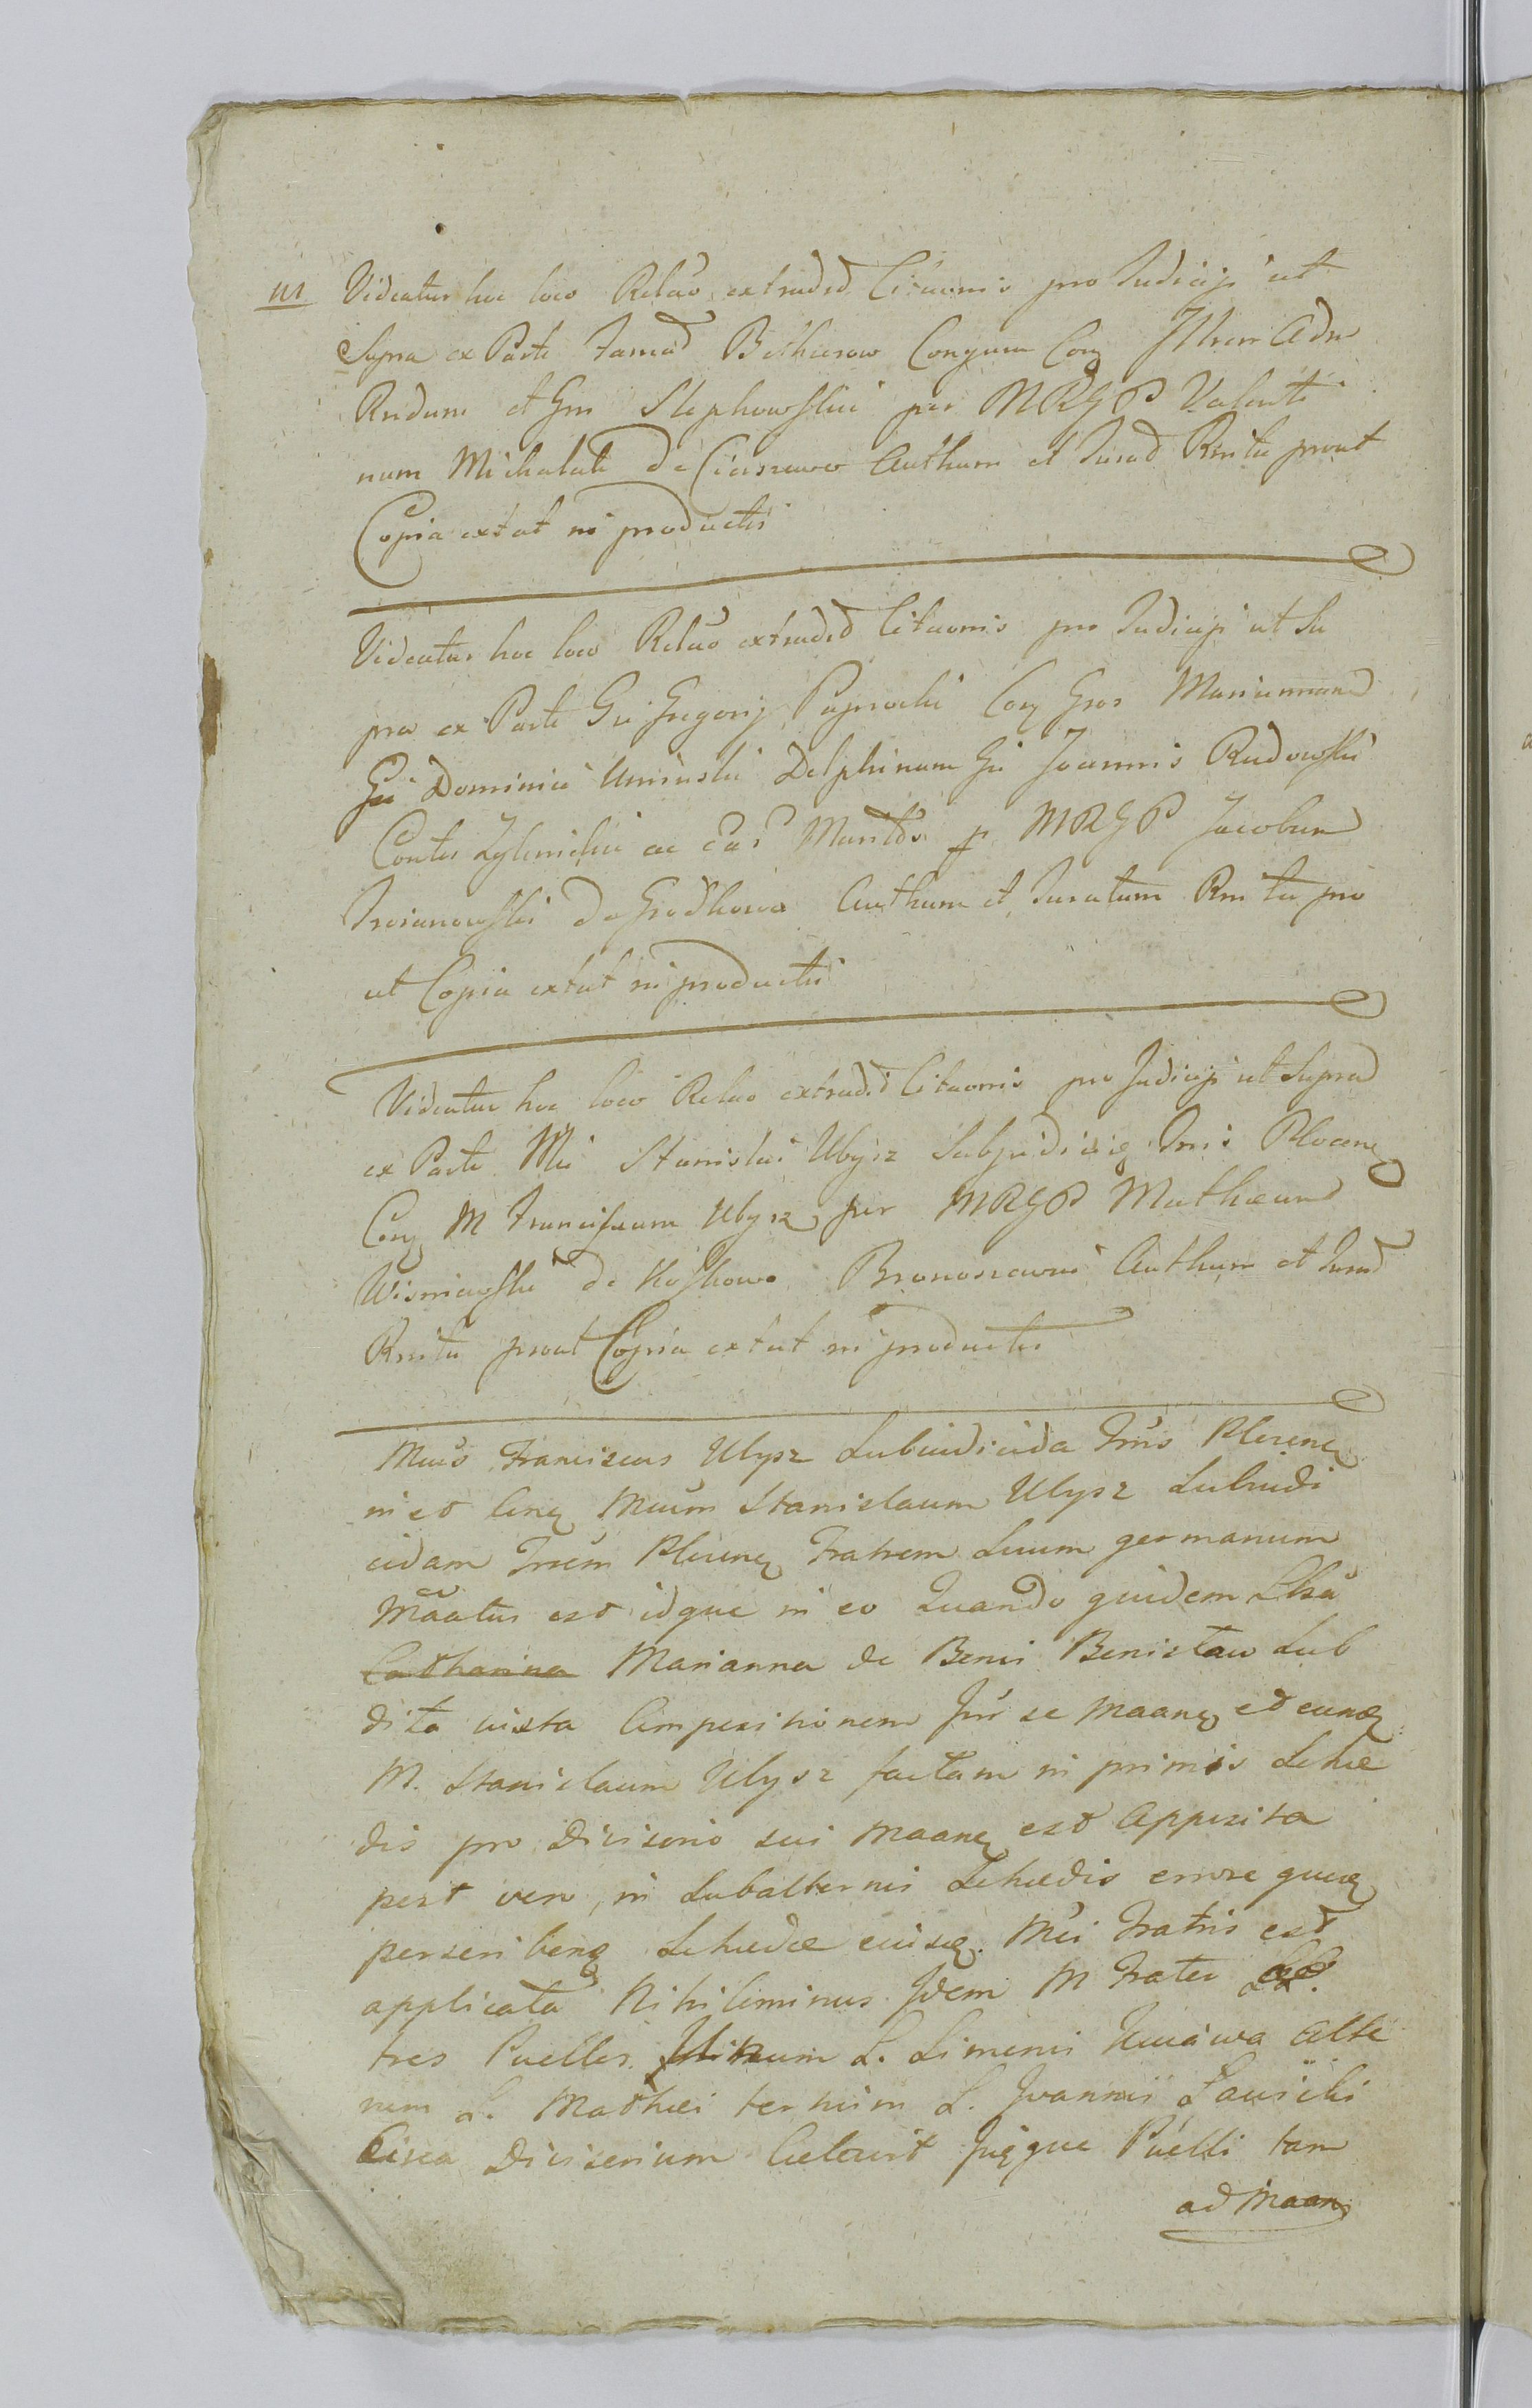 Videatur hoc loco Relao extraded Citaonis pro Judicijs ut
Supra ex Parte Famad Bethierow Conguum Con Illrem Adm
Rndum et Gm Stephowskii per MRGP Valenti
num Michalak de Ciarzewo Authum et Jurad Rnita prout
Copia extat in productis
Videatur hoc loco Relao extraded Citaonis pro Judicijs ut Su
pra ex Parte Gi Gregorij Paprocki Con Gros Mariannam
Gi Dominici Uminski Delphinam Gi Joannis Rudowski
Contes ac eas Maritos p MRGP Jacobum
Troianowski de Grodkowo Authum et Juratum Rnita pro
ut Copia extat in productis
Videatur hoc loco Relao extradi Citaonis pro Judicijs ut Suprad
ex Parte Mci Stanislai Ubysz Subjudicis Tris Plocen
Con M Franciscum Ubysz per MRGP Mathæum
Wisniewski de Koskowo Bronoszewice Authum et Jurad
Rnita prout Copia extat in productis
Mcus Franciscus Ubysz Subiudicida Trris Plocen
in et Con Mcum Stanislaum Ubysz Subiudi
cidam Trrem Plocen Fratrem Suum germanum
Maatus est idque in eo Quando quidem Lbsa
Catharina Marianna de Beni Benistaw Sub
dita iuxta Compositionem Inr se Maan et eund
M. Stanislaum Ubysz factam in primis Schæ
dis pro Divisorio sui Maan est Apposita
post vero, in Subalternis Schædis errore
perscriben Schædæ eiusd. Mci Fratris est
applicata Nihilominus Idem M Frater
tres Puellos Unum L. Simonis alte
rum L. Mathæi tertium L. Joannis Sawicki
Circa Divisorium Celavit Puelli tam
ad Maan